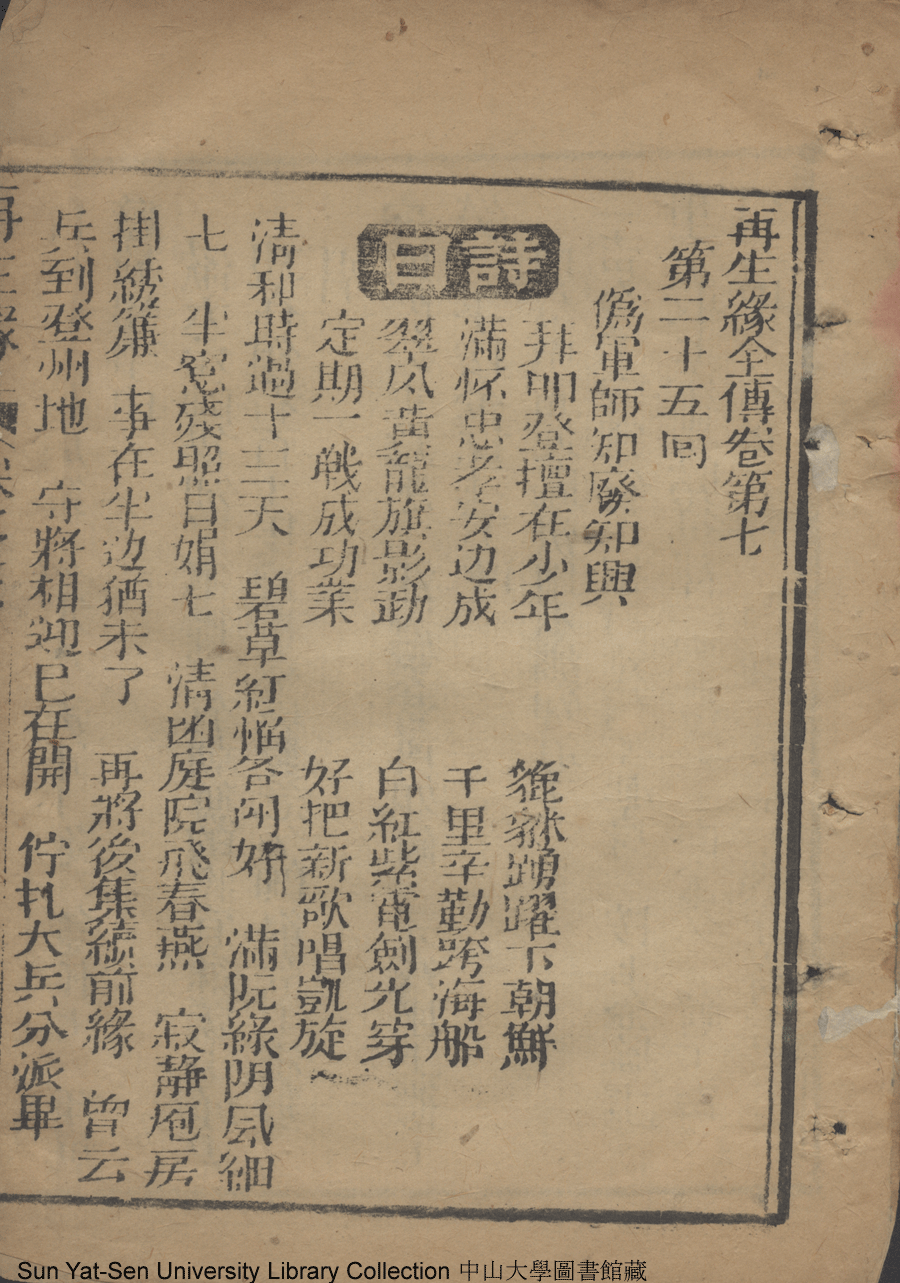 再生緣全傳卷第七
第二十五回
僞軍師知廢知興
詩曰
拜印登擅在少年 貔貅踴躍下朝鮮
滿怀忠孝安边成 千里辛勤跨海船
翠凤黃龍旗影動 白紅紫電劍光穿
定期一戰成功業 好把新歌唱凱旋
清和時過十三天 碧草紅榴各闲妍 滿阮綠阴凤細
七 半窓殘照日娟七 清幽庭院飛春燕 寂静庖房
掛綉簾 事在半边猶未了 再將後集續前緣 曾云
兵到登州地 守將相迎已在開 佇扎大兵分派畢
再生緣
Sun Yat-Sen University Library Collection 中山大學圖書館藏